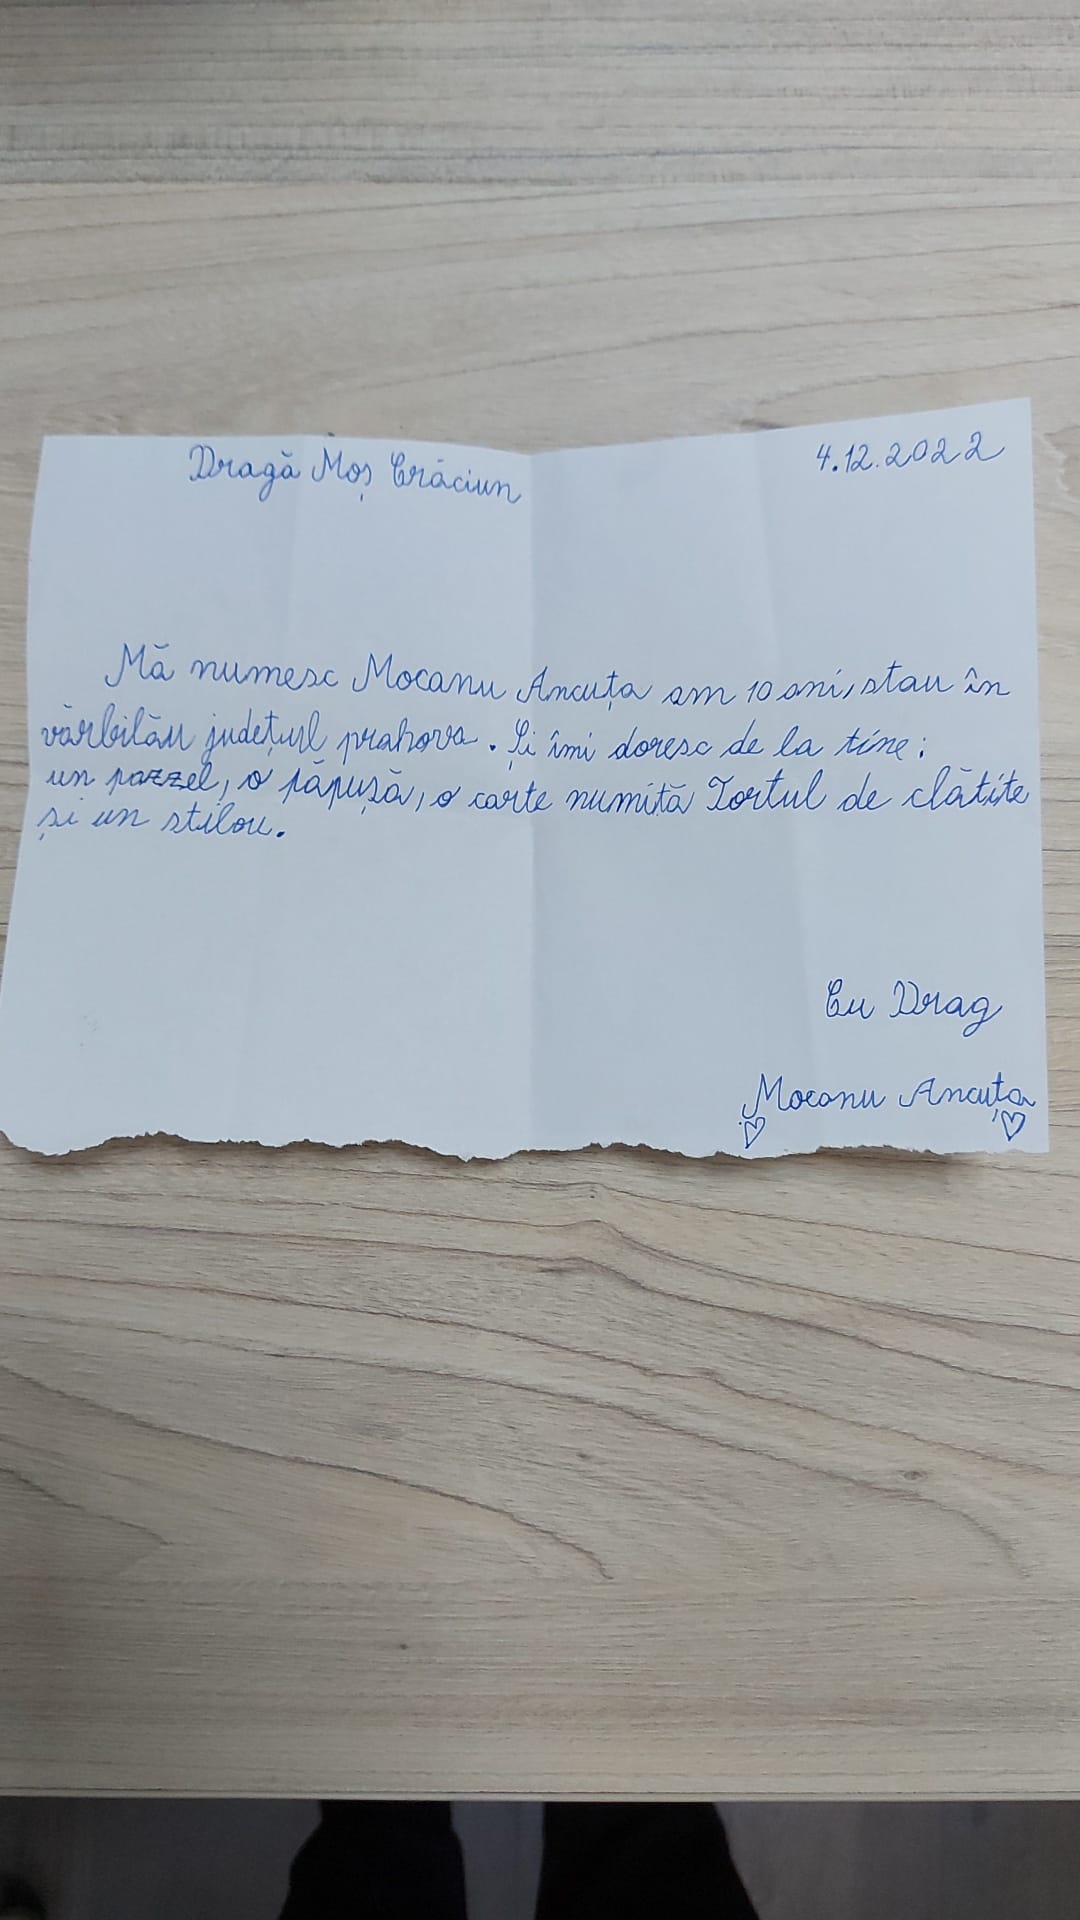 Dragă Moș Crăciun
4.12.2022
Mă numesc Mocanu Ancuța am 10 ani, stau în
vărbilău județul prahova. Și îmi doresc de la tine:
un pazzel, o păpușă, o carte numită Tortul de clătite
și un stilou.
Cu Drag
Mocanu Ancuța